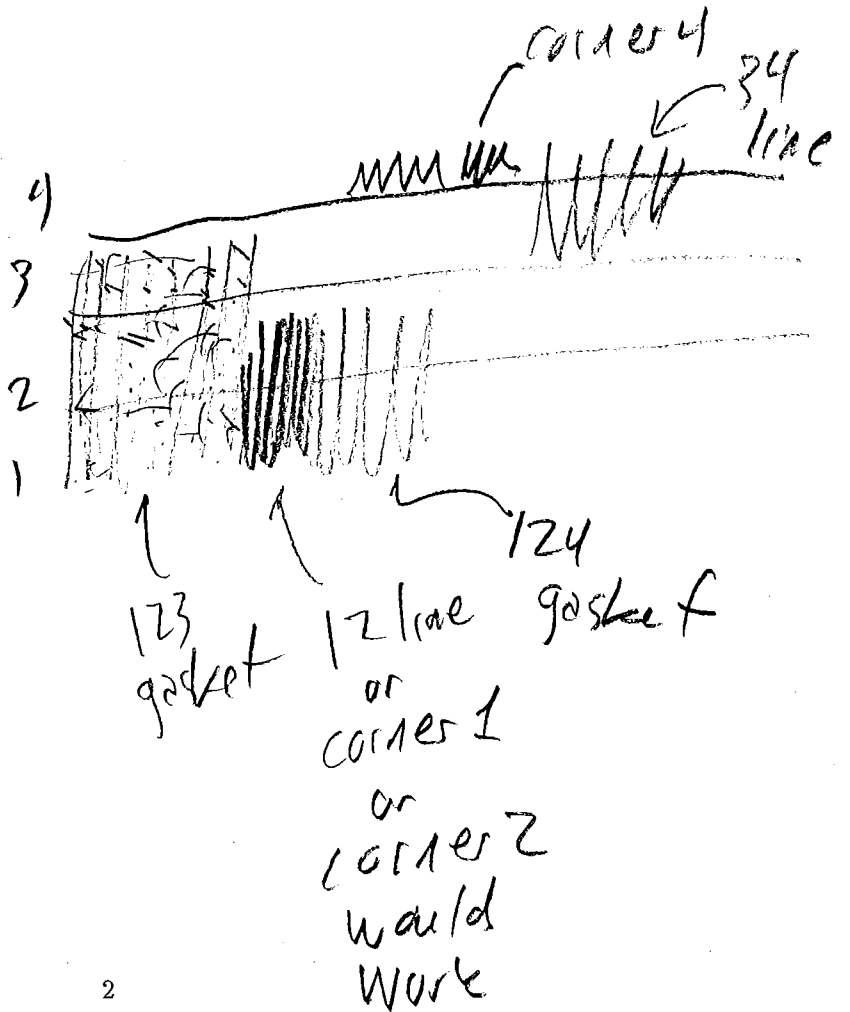 corner 4
34
line
4
3
2
1
123
gasket
12 line
or
corner 1
or
corner 2
would
work
124
gasket
2